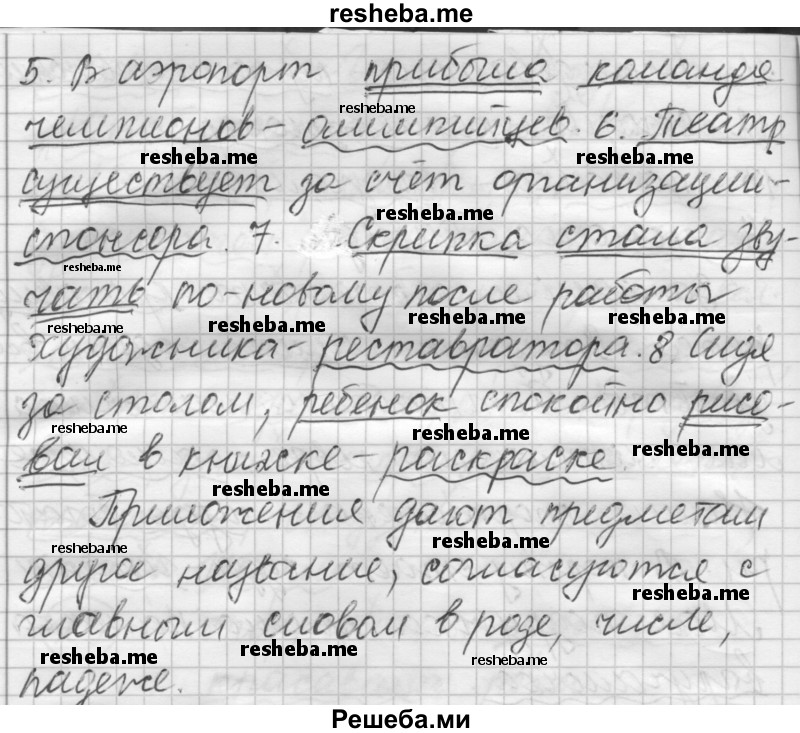 resheba.me
5. В аэропорт прибыла команда
resheba.me
чемпионов – олимпийцев. 6. Театр
resheba.me resheba.me
существует за счёт организации-
resheba.me
спонсора. 7. Скрипка стала зву-
resheba.me resheba.me
чать по-новому после работы
resheba.me resheba.me resheba.me resheba.me
художника – реставратора. 8 Сидя
за столом, ребенок спокойно рисо-
resheba.me resheba.me resheba.me
вал в книжке – раскраске.
resheba.me
Приложения дают предметам
resheba.me resheba.me
другое название, согласуются с
resheba.me
главным словом в роде, числе,
resheba.me resheba.me resheba.me
падеже.
Решеба.ми